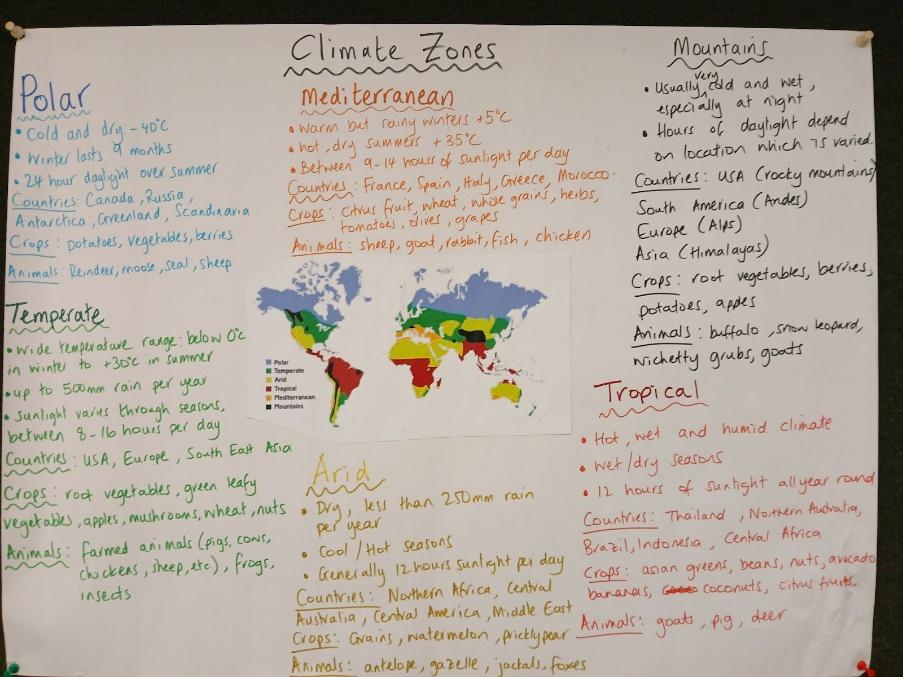 Climate Zones
Polar
• Cold and dry: -40°C
• Winter lasts 9 months
• 24 hour daylight over summer
Countries: Canada, Russia,
Antarctica, Greenland, Scandinavia
Crops: potatoes, vegetables, berries
Animals: Reindeer, moose, seal, sheep
Temperate
• wide temperature range: below 0°C
in winter to +30°C in summer
• up to 500mm rain per year
• sunlight varies through seasons,
between 8-16 hours per day
Countries: USA, Europe, South East Asia
Crops: root vegetables, green leafy
vegetables, apples, mushrooms, wheat, nuts
Animals: farmed animals (pigs, cows,
chickens, sheep, etc), frogs,
insects
Mediterranean
• warm but rainy winters +5°C
• hot, dry summers +35°C
• Between 9-14 hours of sunlight per day
Countries: France, Spain, Italy, Greece, Morocco.
Crops: citrus fruit, wheat, whole grains, herbs,
tomatoes, olives, grapes
Animals: sheep, goat, rabbit, fish, chicken
Polar
Temperate
Arid
Tropical
Mediterranean
Mountains
Arid
• Dry, less than 250mm rain
per year
• Cool/Hot seasons
• Generally 12 hours sunlight per day
Countries: Northern Africa, Central
Australia, Central America, Middle East
Crops: Grains, watermelon, pricklypear
Animals: antelope, gazelle, jackals, foxes
Mountains
• Usually very cold and wet,
especially at night
• Hours of daylight depend
on location which is varied.
Countries: USA (rocky mountains)
South America (Andes)
Europe (Alps)
Asia (Himalayas)
Crops: root vegetables, berries,
potatoes, apples
Animals: buffalo, snow leopard,
wichetty grubs, goats
Tropical
• Hot, wet and humid climate
• Wet/dry seasons
• 12 hours of sunlight all year round
Countries: Thailand, Northern Australia,
Brazil, Indonesia, Central Africa
Crops: asian greens, beans, nuts, avocado
bananas, coconuts, citrus fruits
Animals: goats, pig, deer